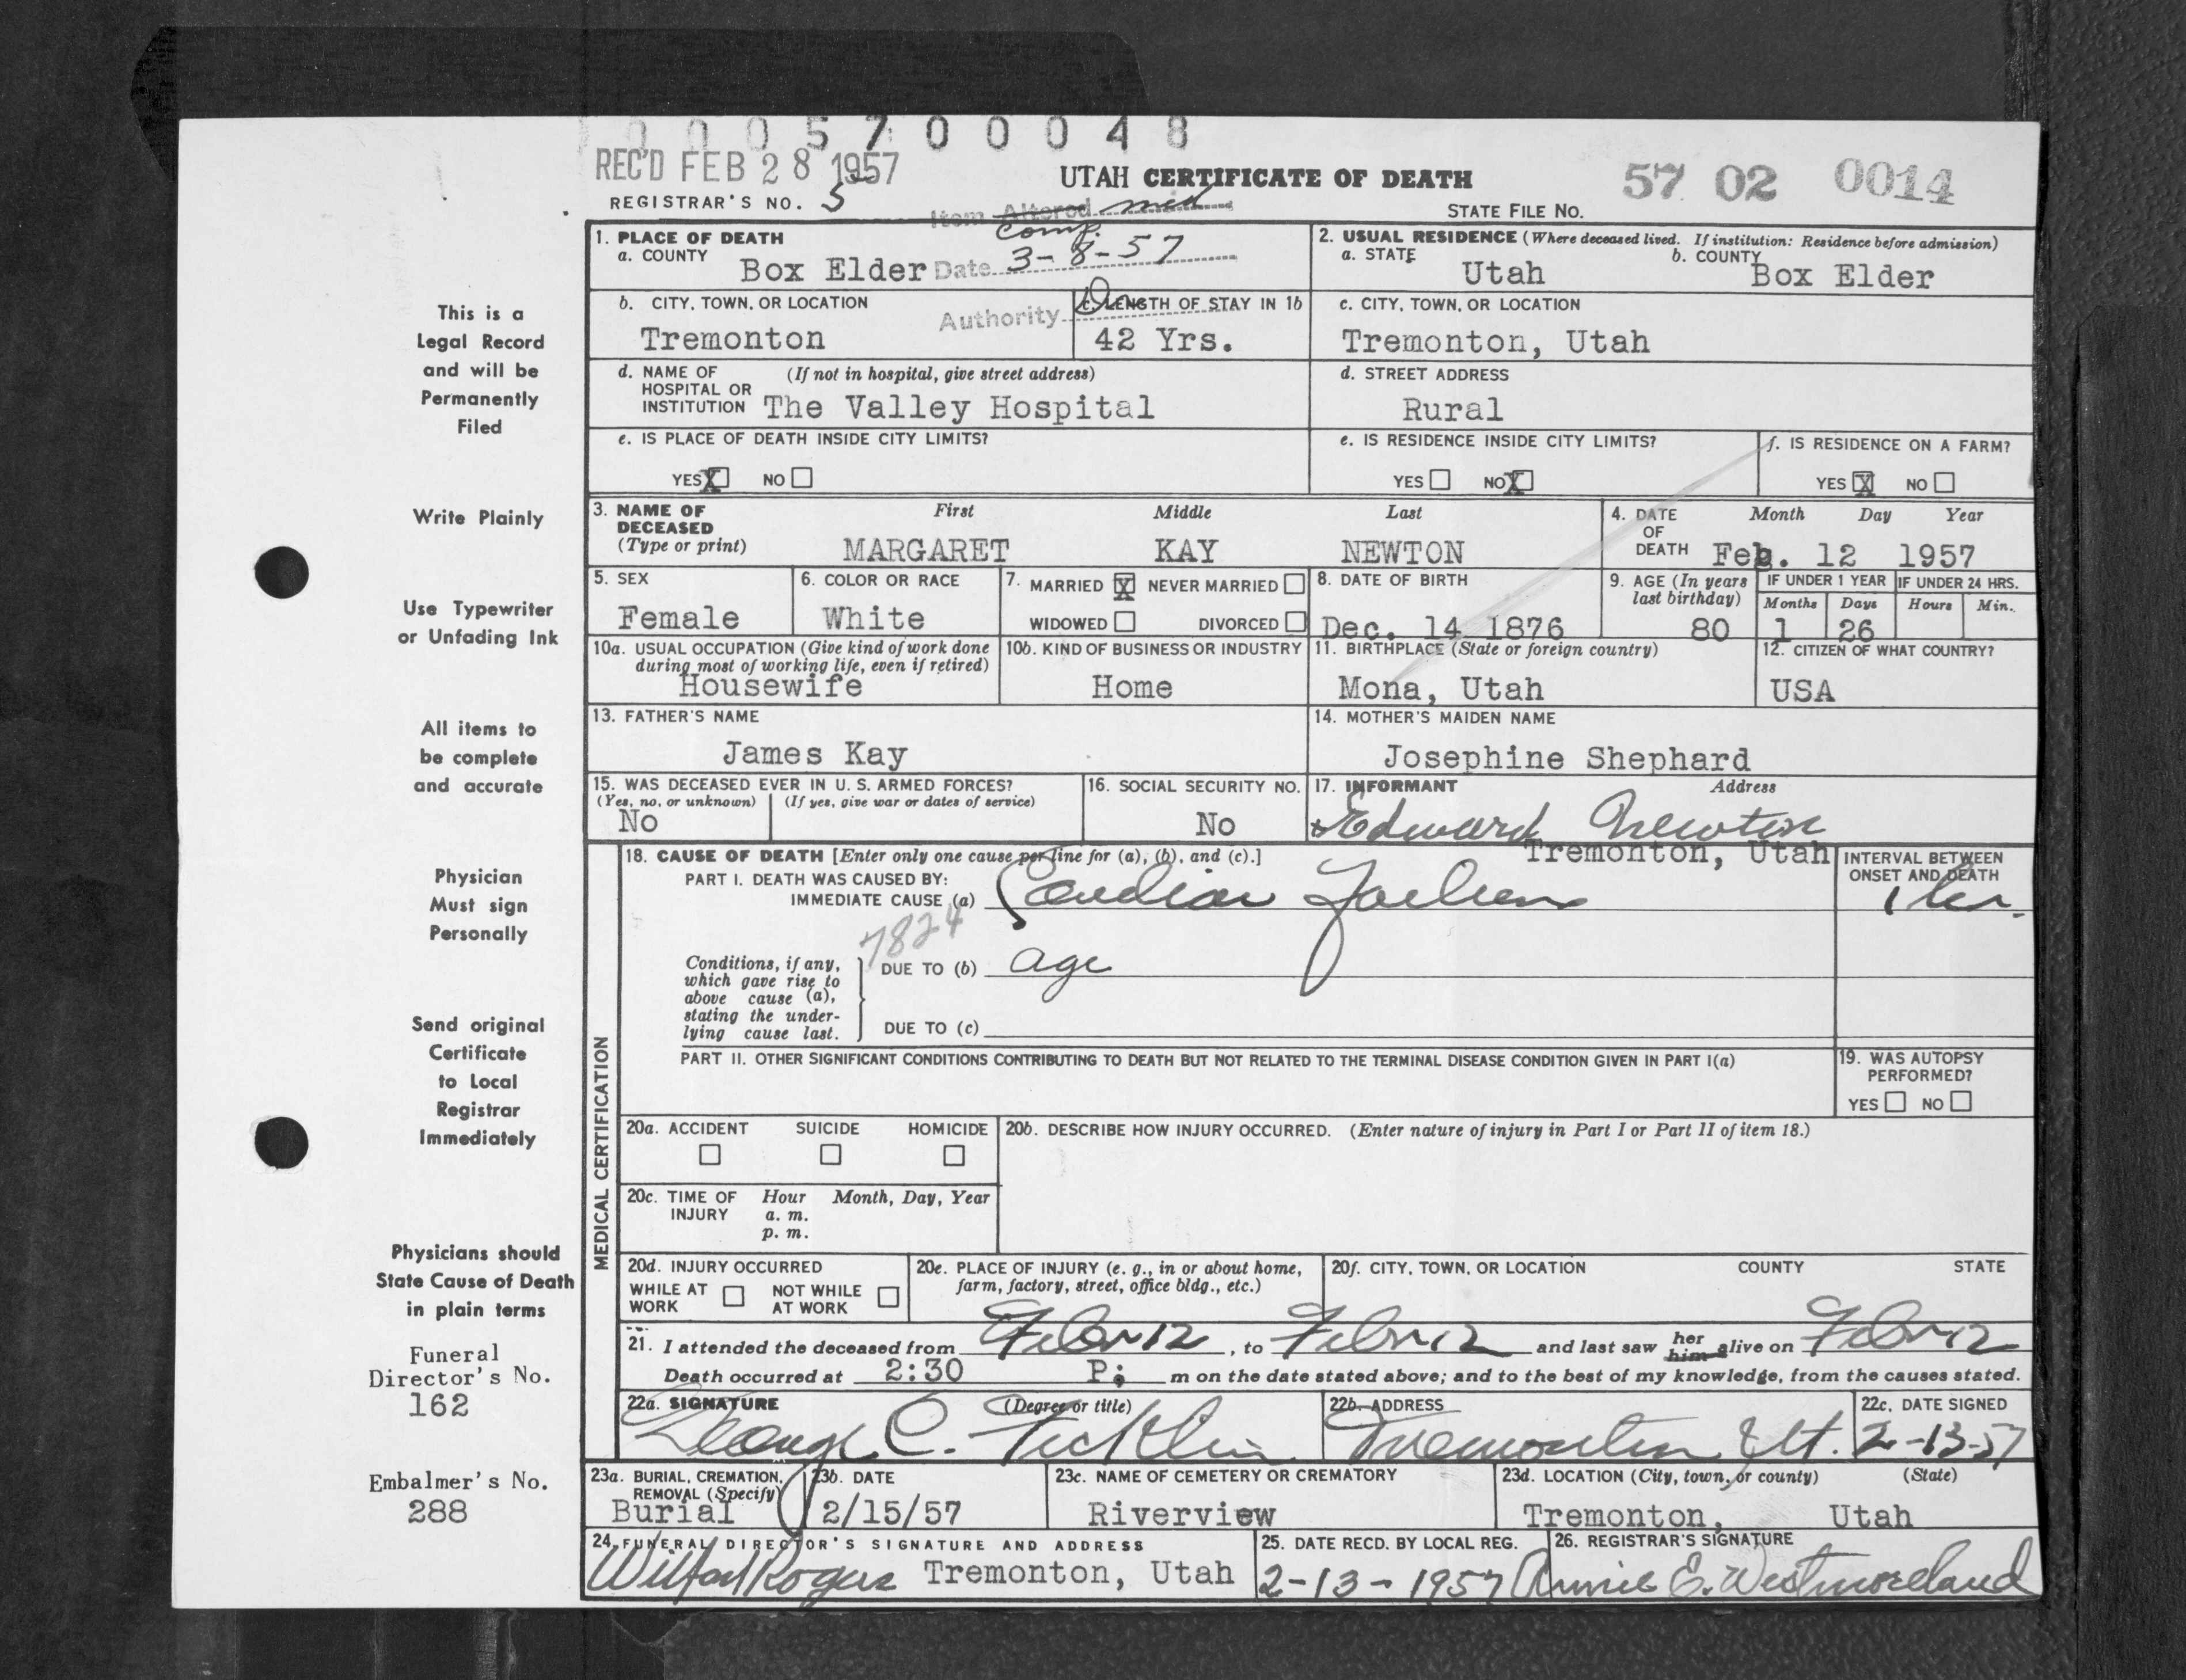 0 0 0 5 7 0 0 0 4 8
REC'D FEB 28 1957
UTAH CERTIFICATE OF DEATH
57 02 0014
REGISTRAR'S NO. 5
STATE FILE NO.
Item Altered med
comp.
Date 3-8-57
Authority
1. PLACE OF DEATH
a. COUNTY
Box Elder
2. USUAL RESIDENCE (Where deceased lived. If institution: Residence before admission)
a. STATE Utah
b. COUNTY Box Elder
b. CITY, TOWN, OR LOCATION
Tremonton
c. LENGTH OF STAY IN 1b
42 Yrs.
c. CITY, TOWN, OR LOCATION
Tremonton, Utah
d. NAME OF HOSPITAL OR INSTITUTION (If not in hospital, give street address)
The Valley Hospital
d. STREET ADDRESS
Rural
e. IS PLACE OF DEATH INSIDE CITY LIMITS?
YES X NO
e. IS RESIDENCE INSIDE CITY LIMITS?
YES NO X
f. IS RESIDENCE ON A FARM?
YES X NO
3. NAME OF DECEASED (Type or print)
First Middle Last
MARGARET KAY NEWTON
4. DATE OF DEATH Month Day Year
Feb. 12 1957
5. SEX
Female
6. COLOR OR RACE
White
7. MARRIED X NEVER MARRIED
WIDOWED DIVORCED
8. DATE OF BIRTH
Dec. 14 1876
9. AGE (In years last birthday)
80
IF UNDER 1 YEAR IF UNDER 24 HRS.
Months Days Hours Min.
1 26
10a. USUAL OCCUPATION (Give kind of work done during most of working life, even if retired)
Housewife
10b. KIND OF BUSINESS OR INDUSTRY
Home
11. BIRTHPLACE (State or foreign country)
Mona, Utah
12. CITIZEN OF WHAT COUNTRY?
USA
13. FATHER'S NAME
James Kay
14. MOTHER'S MAIDEN NAME
Josephine Shephard
15. WAS DECEASED EVER IN U. S. ARMED FORCES?
(Yes, no, or unknown) (If yes, give war or dates of service)
No
16. SOCIAL SECURITY NO.
No
17. INFORMANT Address
Edward Newton
Tremonton, Utah
MEDICAL CERTIFICATION
18. CAUSE OF DEATH [Enter only one cause per line for (a), (b), and (c).]
INTERVAL BETWEEN ONSET AND DEATH
PART I. DEATH WAS CAUSED BY:
IMMEDIATE CAUSE (a) Cardiac Failure
1 hr.
7824
Conditions, if any, which gave rise to above cause (a), stating the underlying cause last.
DUE TO (b) age
DUE TO (c)
PART II. OTHER SIGNIFICANT CONDITIONS CONTRIBUTING TO DEATH BUT NOT RELATED TO THE TERMINAL DISEASE CONDITION GIVEN IN PART I(a)
19. WAS AUTOPSY PERFORMED?
YES NO
20a. ACCIDENT SUICIDE HOMICIDE
20b. DESCRIBE HOW INJURY OCCURRED. (Enter nature of injury in Part I or Part II of item 18.)
20c. TIME OF INJURY Hour Month, Day, Year
a. m.
p. m.
20d. INJURY OCCURRED
WHILE AT WORK NOT WHILE AT WORK
20e. PLACE OF INJURY (e. g., in or about home, farm, factory, street, office bldg., etc.)
20f. CITY, TOWN, OR LOCATION COUNTY STATE
21. I attended the deceased from Febr 12, to Febr 12 and last saw her him alive on Febr 12
Death occurred at 2:30 P: m on the date stated above; and to the best of my knowledge, from the causes stated.
22a. SIGNATURE (Degree or title)
George C. Ficklin
22b. ADDRESS
Tremonton Ut.
22c. DATE SIGNED
2-13-57
23a. BURIAL, CREMATION, REMOVAL (Specify)
Burial
23b. DATE
2/15/57
23c. NAME OF CEMETERY OR CREMATORY
Riverview
23d. LOCATION (City, town, or county) (State)
Tremonton, Utah
24. FUNERAL DIRECTOR'S SIGNATURE AND ADDRESS
Wilford Rogers Tremonton, Utah
25. DATE RECD. BY LOCAL REG.
2-13-1957
26. REGISTRAR'S SIGNATURE
Annie E. Westmoreland
This is a
Legal Record
and will be
Permanently
Filed
Write Plainly
Use Typewriter
or Unfading Ink
All items to
be complete
and accurate
Physician
Must sign
Personally
Send original
Certificate
to Local
Registrar
Immediately
Physicians should
State Cause of Death
in plain terms
Funeral
Director's No.
162
Embalmer's No.
288